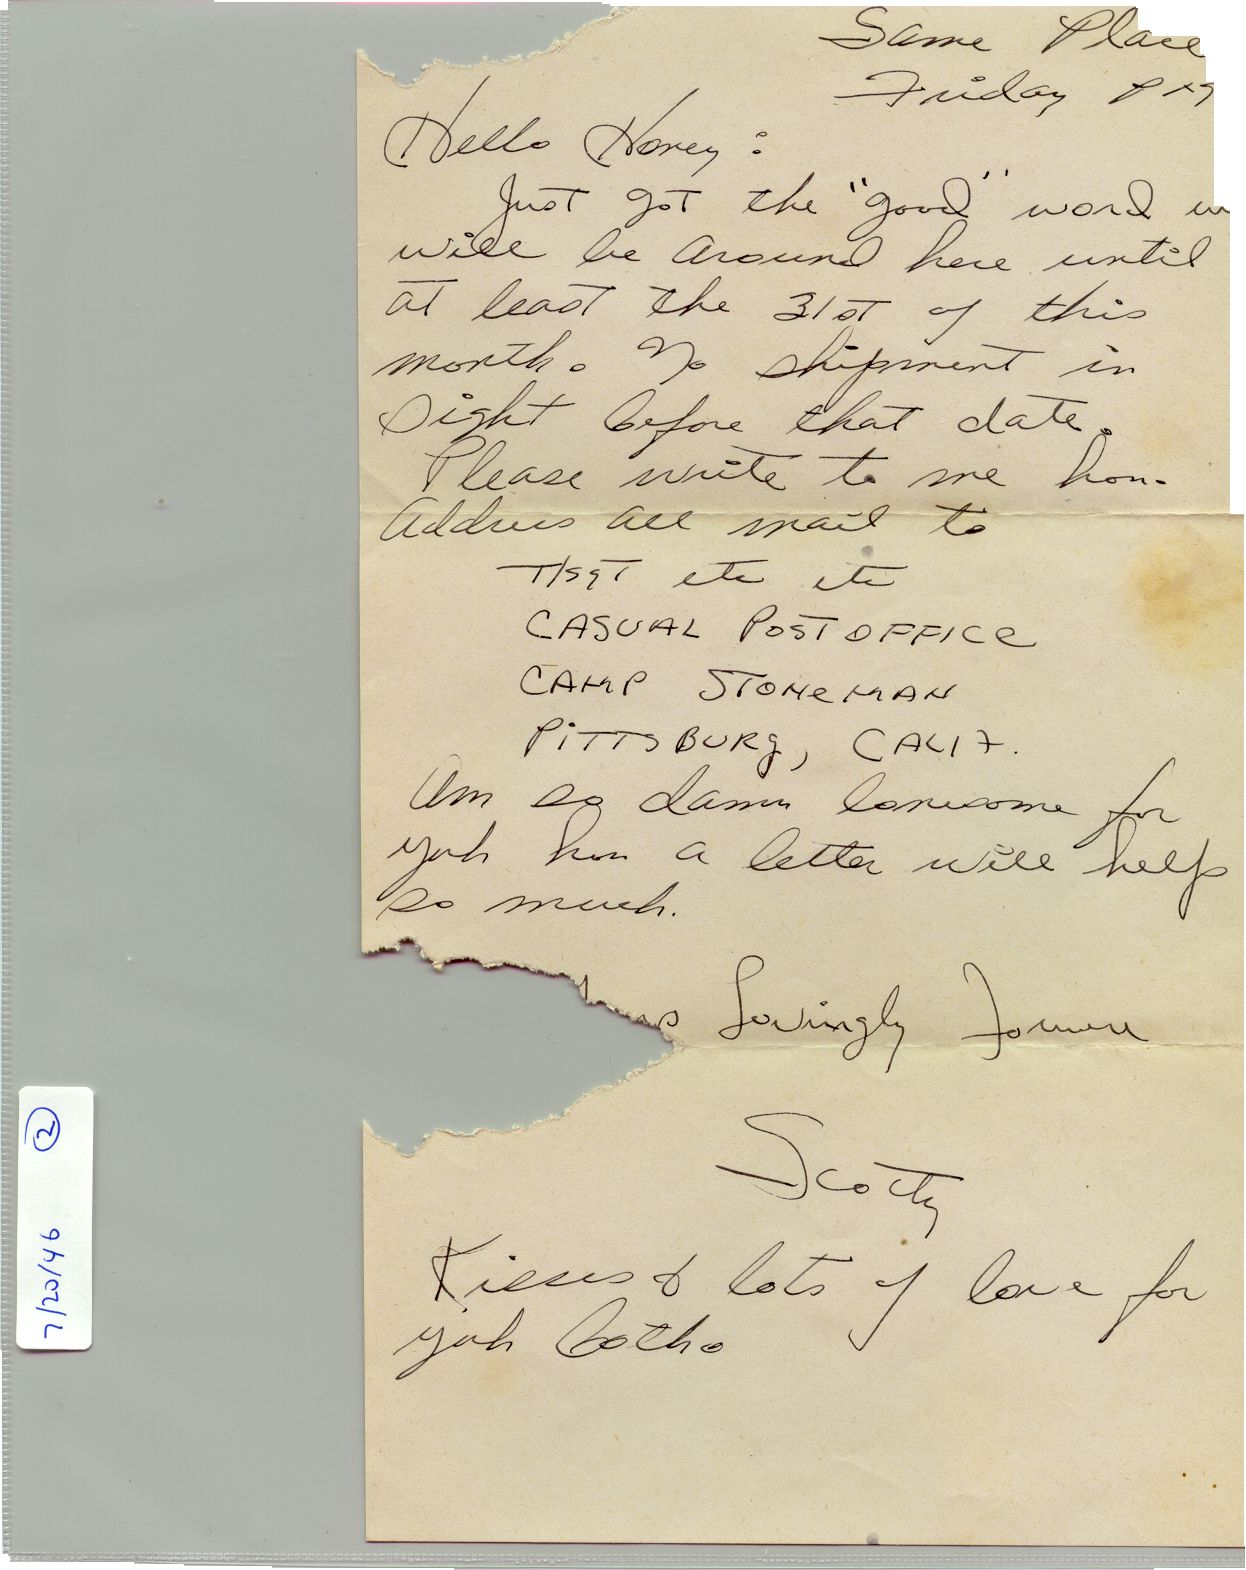 Same Place
Friday PM
Hello Honey:
Just got the "good" word w
will be around here until
at least the 31st of this
month. No shipment in
sight before that date.
Please write to me hon.
Address all mail to
T/SGT etc etc
CASUAL POST OFFICE
CAMP STONEMAN
PITTSBURG, CALIF.
Am so damn lonesome for
yuh hon a letter will help
so much.
Lovingly Forever
Scotty
Kisses & lots of love for
yuh both.
7/20/46 2